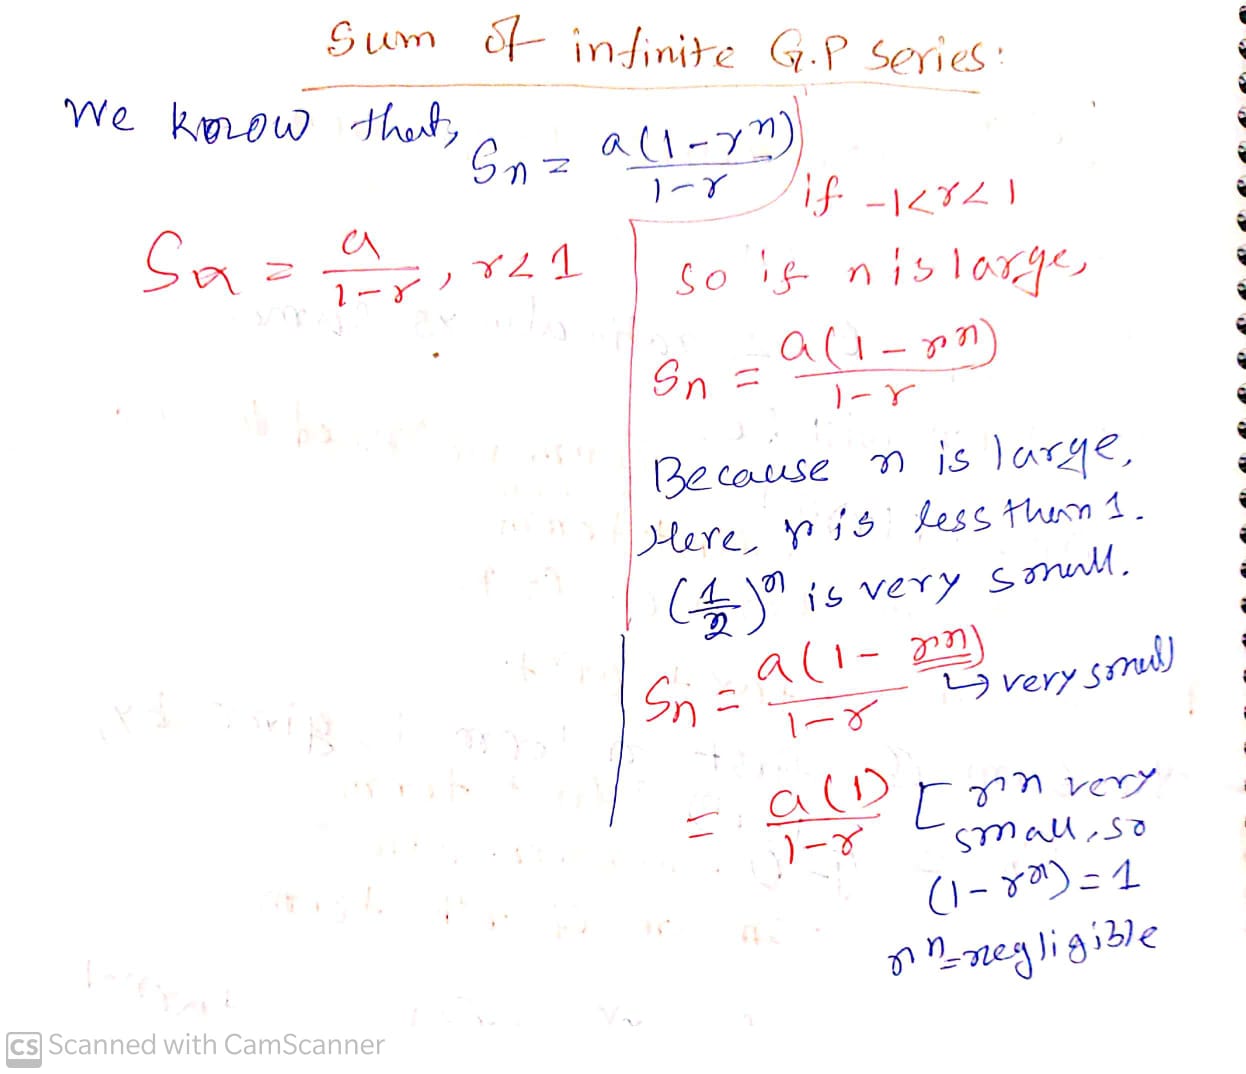 Sum of infinite G.P series:
We know that,
Sn = a(1-rⁿ) / 1-r
if -1<r<1
Sα = a / 1-r , r<1
so if n is large,
Sn = a(1-rⁿ) / 1-r
Because n is large,
Here, r is less than 1.
(1/2)ⁿ is very small.
Sn = a(1-rⁿ) / 1-r
↳ very small
= a(1) / 1-r
[ rⁿ very
small, so
(1-rⁿ)=1
rⁿ=negligible
CS Scanned with CamScanner